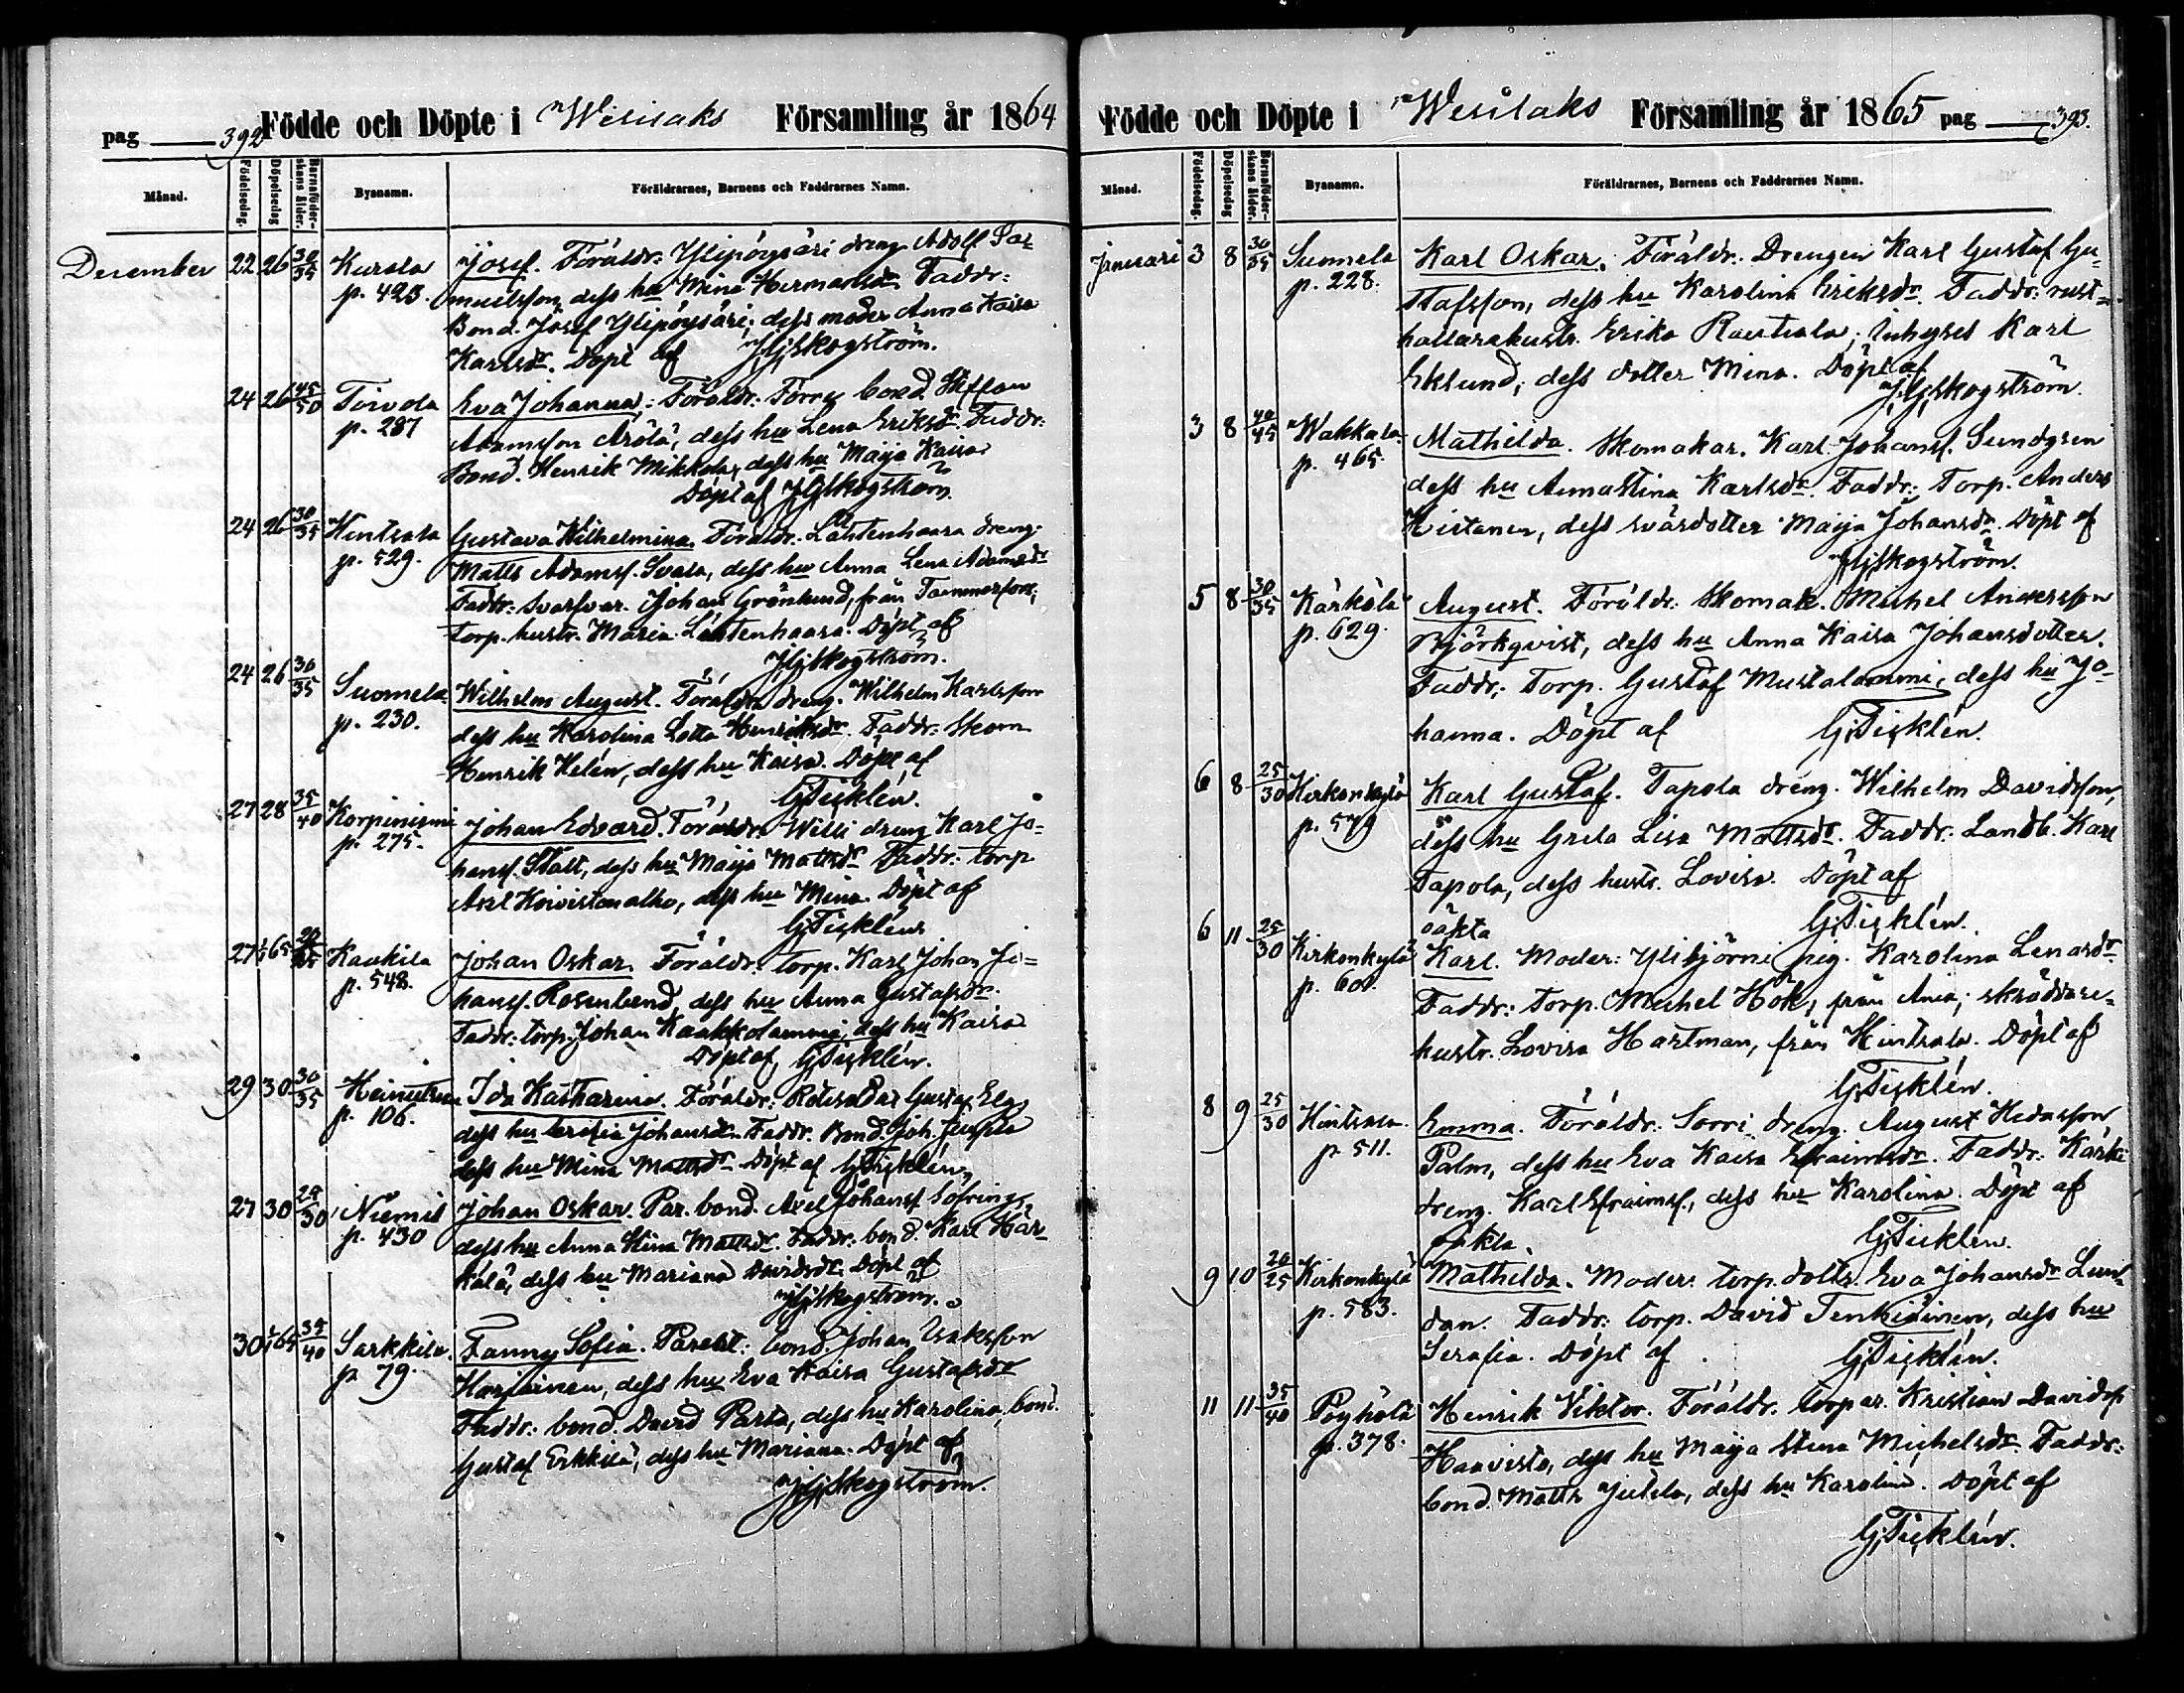 pag 392 Födde och Döpte i Wesilaks Församling år 1864
Månad. Födelsedag. Döpelsedag Barnaföderskans ålder. Byanamn. Föräldrarnes, Barnens och Faddrarnes Namn.
December 22 26 30/35 Kurala Josef. Föräldr: Ylipöysäri dreng Adolf Sa-
p. 423. muelsson, dess hu Mina Hermansdr. Faddr:
Bond. Josef Ylipöysäri; dess moder Anna Kaisa
Karlsdr. Döpt af J.G.Skogström.
24 26 45/50 Toivola Eva Johanna. Föräldr: Förra bond. Staffan
p. 287 Adamsson Arölä, dess hu Lena Eriksdr. Faddr:
Bond. Henrik Mikkola, dess hu Maija Kaisa
Döpt af J.G.Skogström.
24 26 30/35 Hintsala Gustava Wilhelmina. Föräldr. Lähtenhaara dreng.
p. 529. Matts Adamss. Svala, dess hu Anna Lena Adamsdr
Faddr: Svarfvar. Johan Grönlund, från Tammerfors;
torp. hustr. Maria Lähtenhaara. Döpt af
J.G.Skogström.
24 26 30/35 Suomela Wilhelm August. Föräldr. dreng. Wilhelm Karlsson
p. 230. dess hu Karolina Lotta Henriksdr. Faddr: Skom
Henrik Helén, dess hu Kaisa. Döpt af
G.Ticklén.
27 28 35/40 Korpiniemi Johan Edvard. Föräldr. Willi dreng Karl Jo-
p. 275. hanss. Stålt, dess hu Maija Mattsdr Faddr: torp
Axel Koivistonalho, dess hu Mina. Döpt af
G.Ticklén
27 1/1 65 Kaukila Johan Oskar. Föräldr. torp. Karl Johan Jo-
p. 548. hanss. Rosenlund, dess hu Anna Gustafsdr.
Faddr: torp. Johan Kaakkolammi, dess hu Kaisa
Döpt af G.Ticklén.
29 30 30/35 Ida Katharina. Föräldr: Rotesoldat Gustaf Elg
p. 106. dess hu Serafia Johansdr. Faddr. Bond. Joh.
dess hu Mina Mattsdr. Döpt af G.Ticklén
27 30 /30 Niemis Johan Oskar. Par. bond. Axel Johanss Löfring,
p. 430 dess hu Anna Stina Mattsdr. Faddr: bond. Karl Här-
kälä, dess hu Mariana Davidsdr. Döpt af
J.G.Skogström.
30 1/1 65 /40 Sarkkila. Fanny Sofia. Parent: bond. Johan Isaksson
p. 79. Harjainen, dess hu Eva Kaisa Gustafsdr
Faddr: bond. David Parta, dess hu Karolina, bond.
Gustaf Erkkilä, dess hu Mariana. Döpt af
J.G.Skogström.
Födde och Döpte i Wesilaks Församling år 1865 pag 393.
Månad. Födelsedag. Döpelsedag Barnaföderskans ålder. Byanamn. Föräldrarnes, Barnens och Faddrarnes Namn.
Januari 3 8 30/35 Suomela Karl Oskar. Föräldr. Drengen Karl Gustaf Gu-
p. 228. stafsson, dess hu Karolina Eriksdr. Faddr: rust-
hållarehustr. Erika Rautiala; inhyses Karl
Eklund, dess dotter Mina. Döpt af
J.G.Skogström.
3 8 40/45 Wakkala Mathilda. Skomakar. Karl Johanss. Sundgren
p. 465. dess hu Annastina Karlsdr. Faddr: Torp. Anders
Hietanen, dess svärdotter Maija Johansdr. Döpt af
J.G.Skogström.
5 8 30/35 Kärkälä August. Föräldr: Skomak. Michel Andersson
p. 629. Björkqvist, dess hu Anna Kaisa Johansdotter.
Faddr: Torp. Gustaf Mustalammi, dess hu Jo-
hanna. Döpt af G.Ticklén.
6 8 25/30 Kirkonkylä Karl Gustaf. Tapola dreng. Wilhelm Davidsson,
p. 579 dess hu Greta Lisa Mattsdr. Faddr: Landb. Karl
Tapola, dess hustr. Lovisa. Döpt af
G.Ticklén.
oäkta
6 11 25/30 Kirkonkylä Karl. Moder: Ylibjörni pig. Karolina Lenasdr
p. 601. Faddr: torp. Michel Hök, från Ania; skräddare-
hustr. Lovisa Hartman, från Hintsala. Döpt af
G.Ticklén.
8 9 25/30 Hintsala Emma. Föräldr: Sorri dreng. August Hedasson
p. 511. Palm, dess hu Eva Kaisa Efraimsdr. Faddr: Kärki
dreng. Karl Efraimss., dess hu Karolina. Döpt af
G.Ticklén.
oäkta.
9 10 20/25 Kirkonkylä Mathilda. Moder: torp. dottr. Eva Johansdr Lun-
p. 583. dan. Faddr: torp. David Penkiäinen, dess hu
Serafia. Döpt af G.Ticklén.
11 11 35/40 Pöyhölä Henrik Viktor. Föräldr. torpar. Kristian Davidss
p. 378. Haavisto, dess hu Maija Stina Michelsdr. Faddr:
bond. Matts Jutila, dess hu Karolina. Döpt af
G.Ticklén.